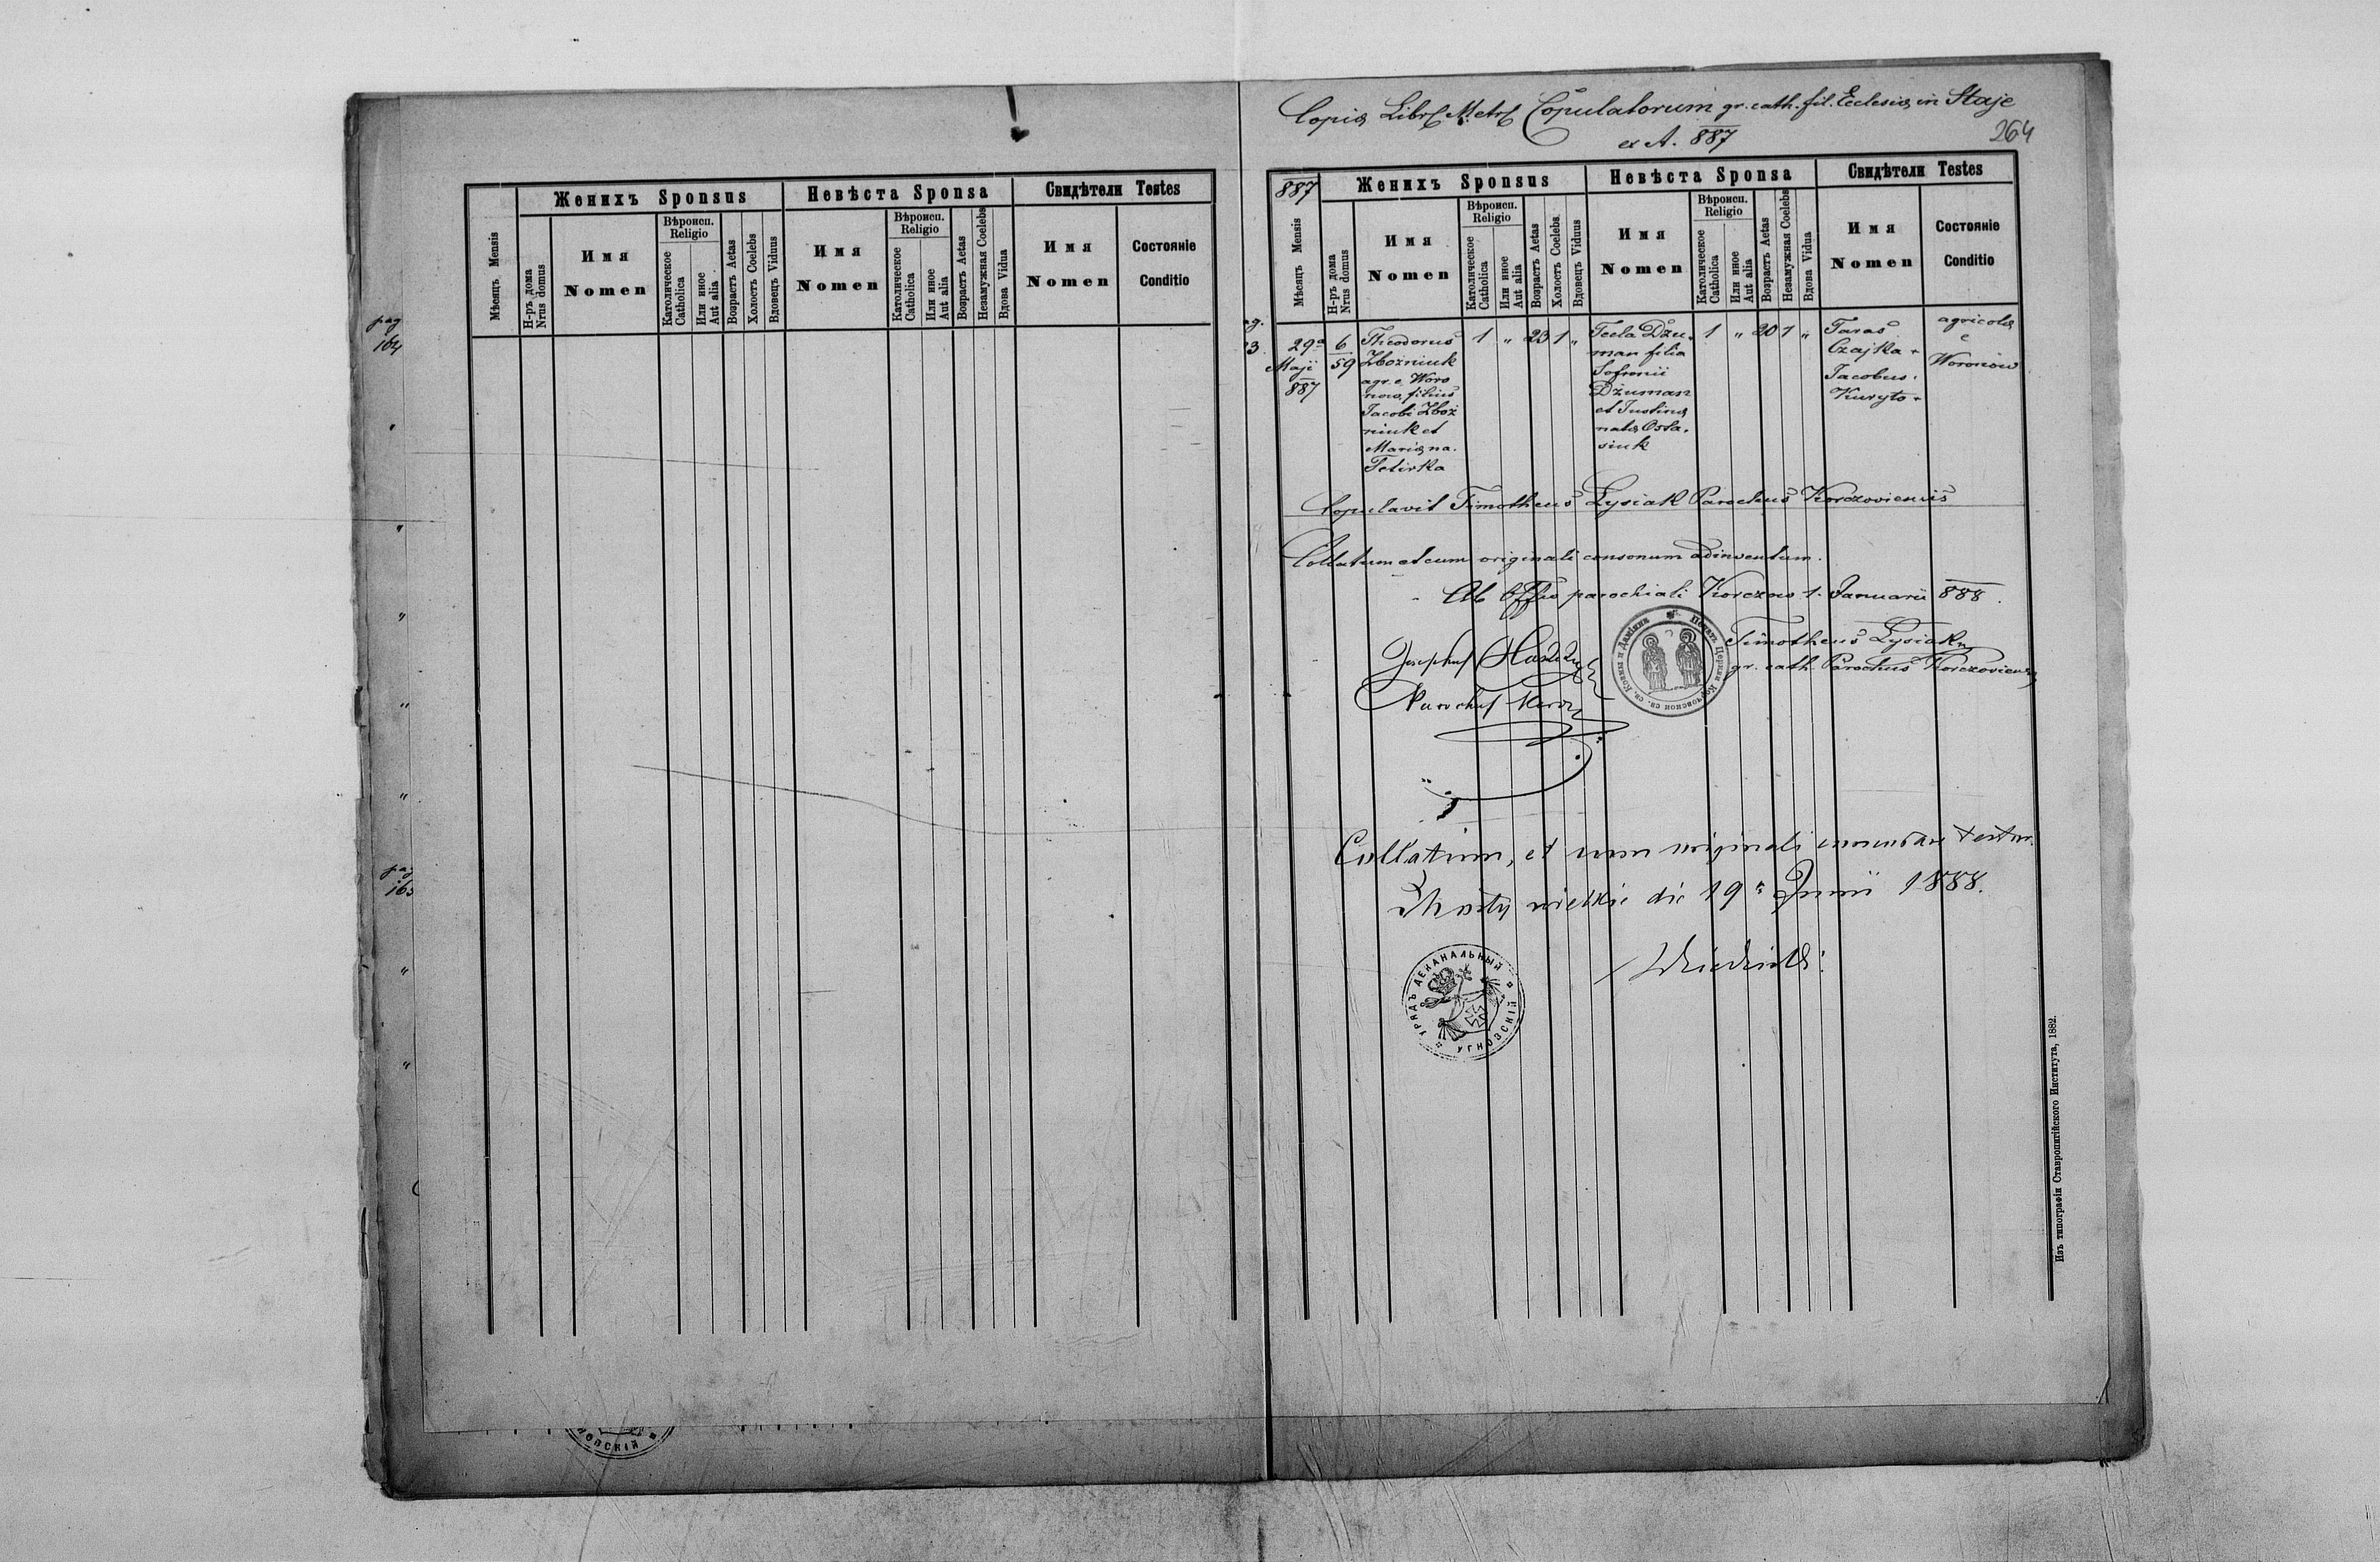 pag
164
"
"
"
"
"
pag
165
"
"
Мѣсяцъ Mensis
Женихъ Sponsus
Н-ръ дома
Nrus domus
Имя
Nomen
Вѣроисп.
Religio
Католическое
Catholica
Или иное
Aut alia
Возрастъ Aetas
Холостъ Coelebs
Вдовецъ Viduus
Невѣста Sponsa
Имя
Nomen
Вѣроисп.
Religio
Католическое
Catholica
Или иное
Aut alia
Возрастъ Aetas
Незамужная Coelebs
Вдова Vidua
Свидѣтели Testes
Имя
Nomen
Состояніе
Conditio
Copia Libri Metr. Copulatorum gr. cath. fil. Ecclesia in Staje
ex A. 887
264
887
Мѣсяцъ Mensis
Женихъ Sponsus
Н-ръ дома
Nrus domus
Имя
Nomen
Вѣроисп.
Religio
Католическое
Catholica
Или иное
Aut alia
Возрастъ Aetas
Холостъ Coelebs
Вдовецъ Viduus
Невѣста Sponsa
Имя
Nomen
Вѣроисп.
Religio
Католическое
Catholica
Или иное
Aut alia
Возрастъ Aetas
Незамужная Coelebs
Вдова Vidua
Свидѣтели Testes
Имя
Nomen
Состояніе
Conditio
29a
Maji
887
6
59
Theodorus
Zbożniuk
agr. e Woro
now, filius
Jacobi Zboż
niuk et
Maria na.
Tetirka
1 " 23 1 "
Tecla Dżu
man filia
Sofronii
Dżuman
et Justina
nata Osta
siuk
1 " 20 1 "
Taras
Czajka +
Jacobus
Kuryto +
agricola
e
Woronow
Copulavit Timotheus Łysiak Parochus Korczoviensis
Collatum et cum originali consonum adinventum.
Ab Offio parochiali Korczow 1. Januarii 888.
Josephus
Parochus
Печать Церкви Корчовской св. св. Козмы и Даміяна
Timotheus Łysiak
gr. cath. Parochus Korczoviensis
Collatum, et cum originali testor.
Mosty wielkie die 19a Junii 1888.
УРЯДЪ ДЕКАНАЛЬНЫЙ УГНОВСКІЙ
НОВСКІЙ
Изъ типографіи Ставропигійского Института, 1882.